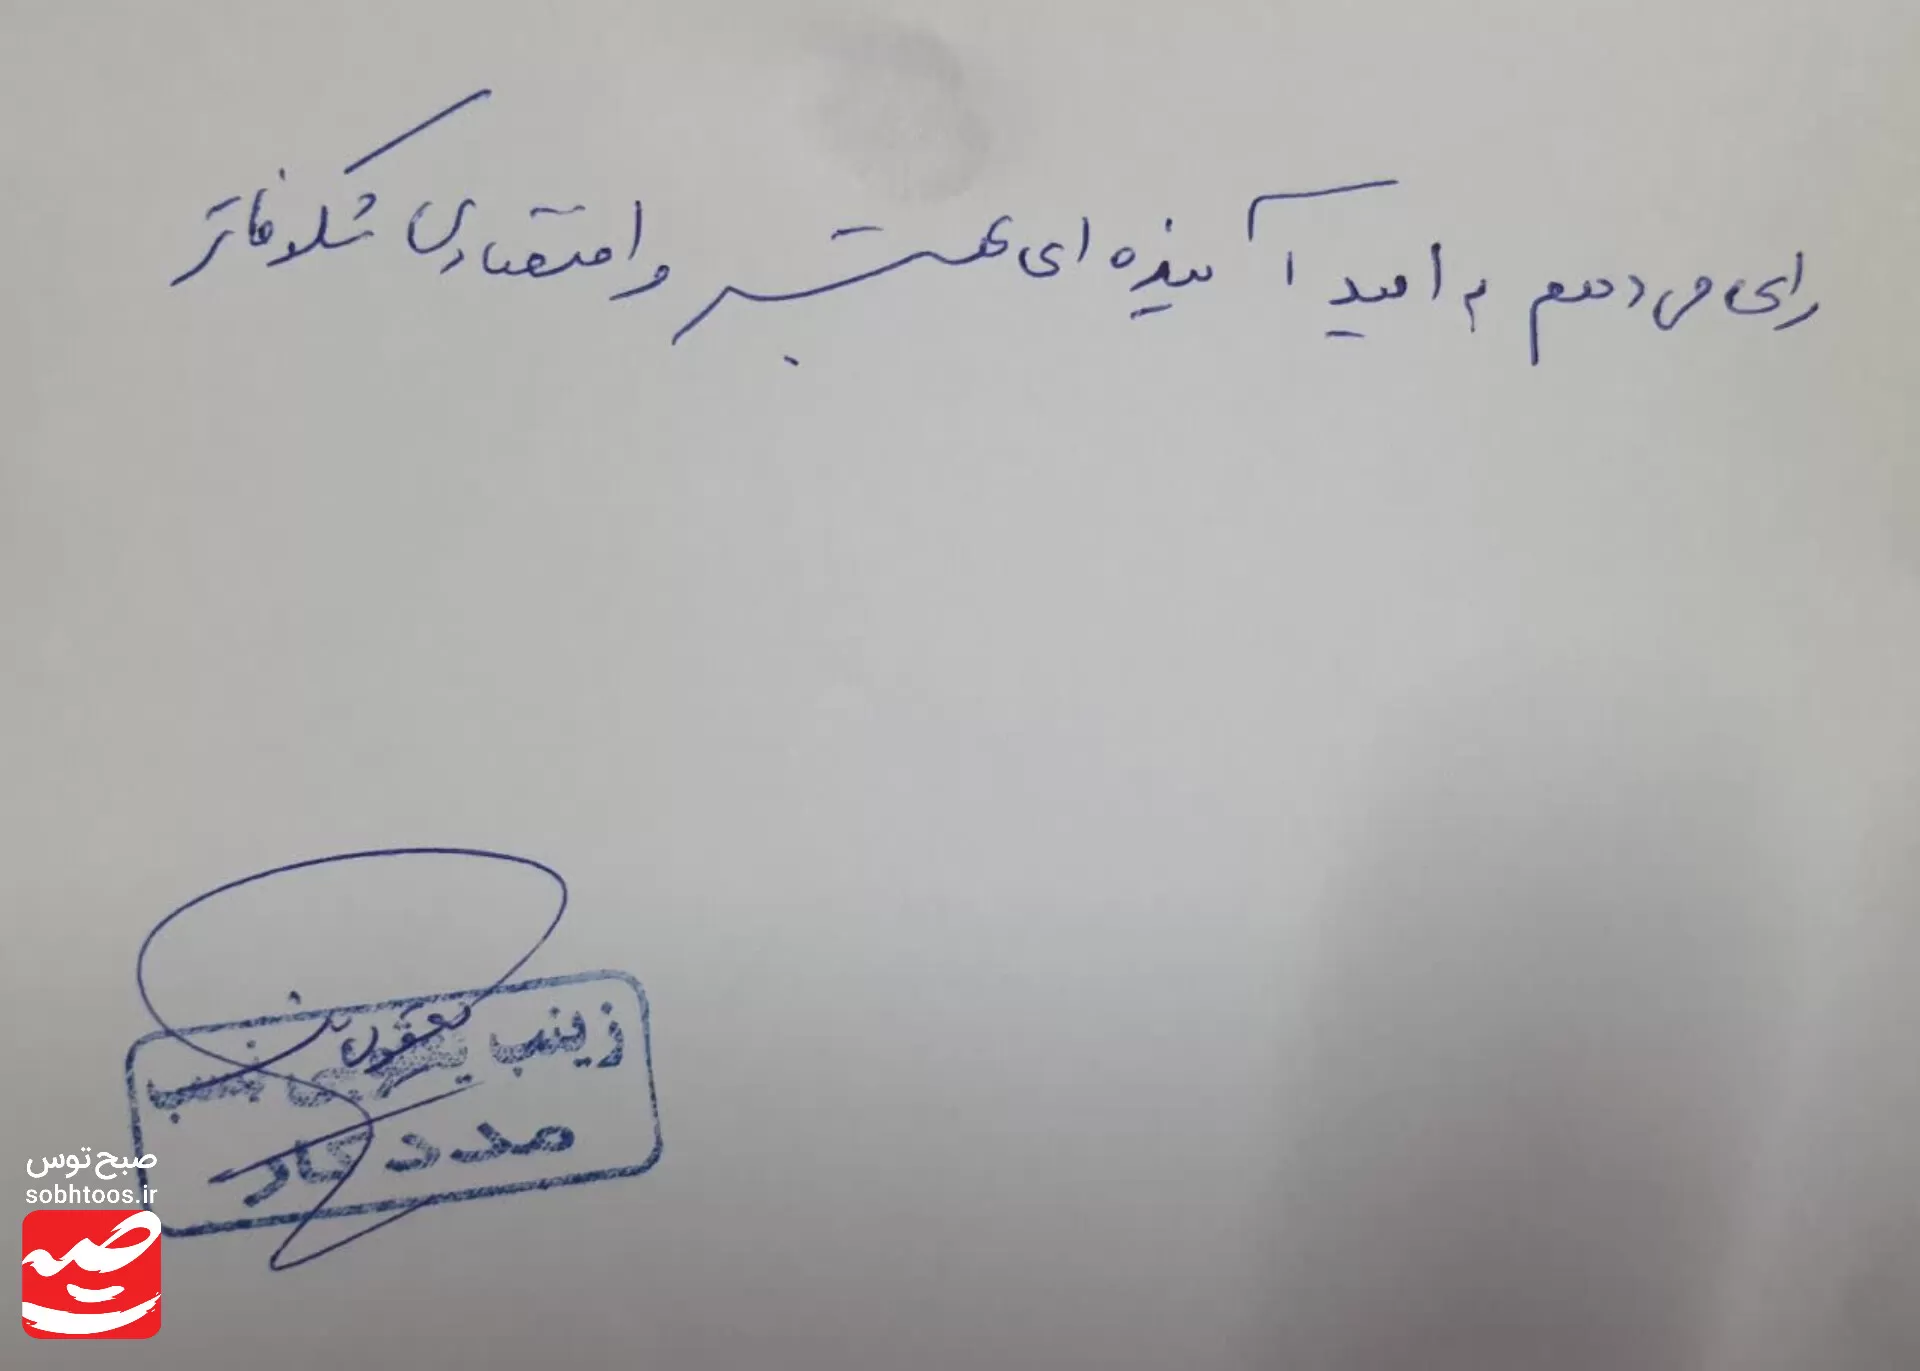 رای می دهم به امید آینده ای بهتر و اقتصادی شکوفاتر
زینب یعقوبی نسب
مددکار
صبح توس
sobhtoos.ir